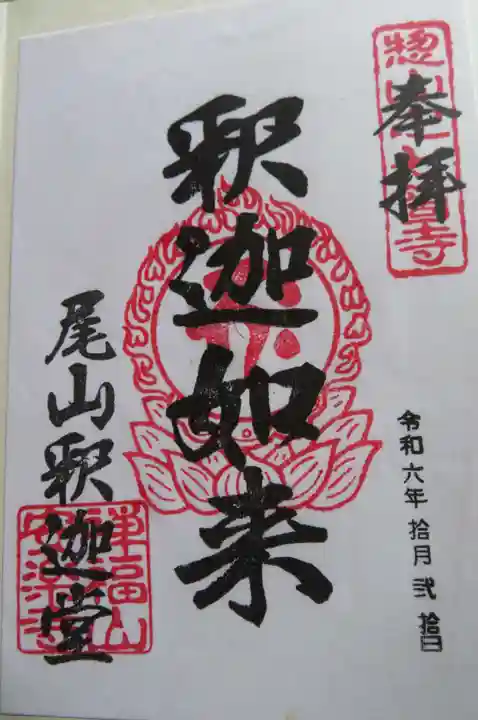 奉拝
令和六年拾月弐拾日
釈迦如来
尾山釈迦堂